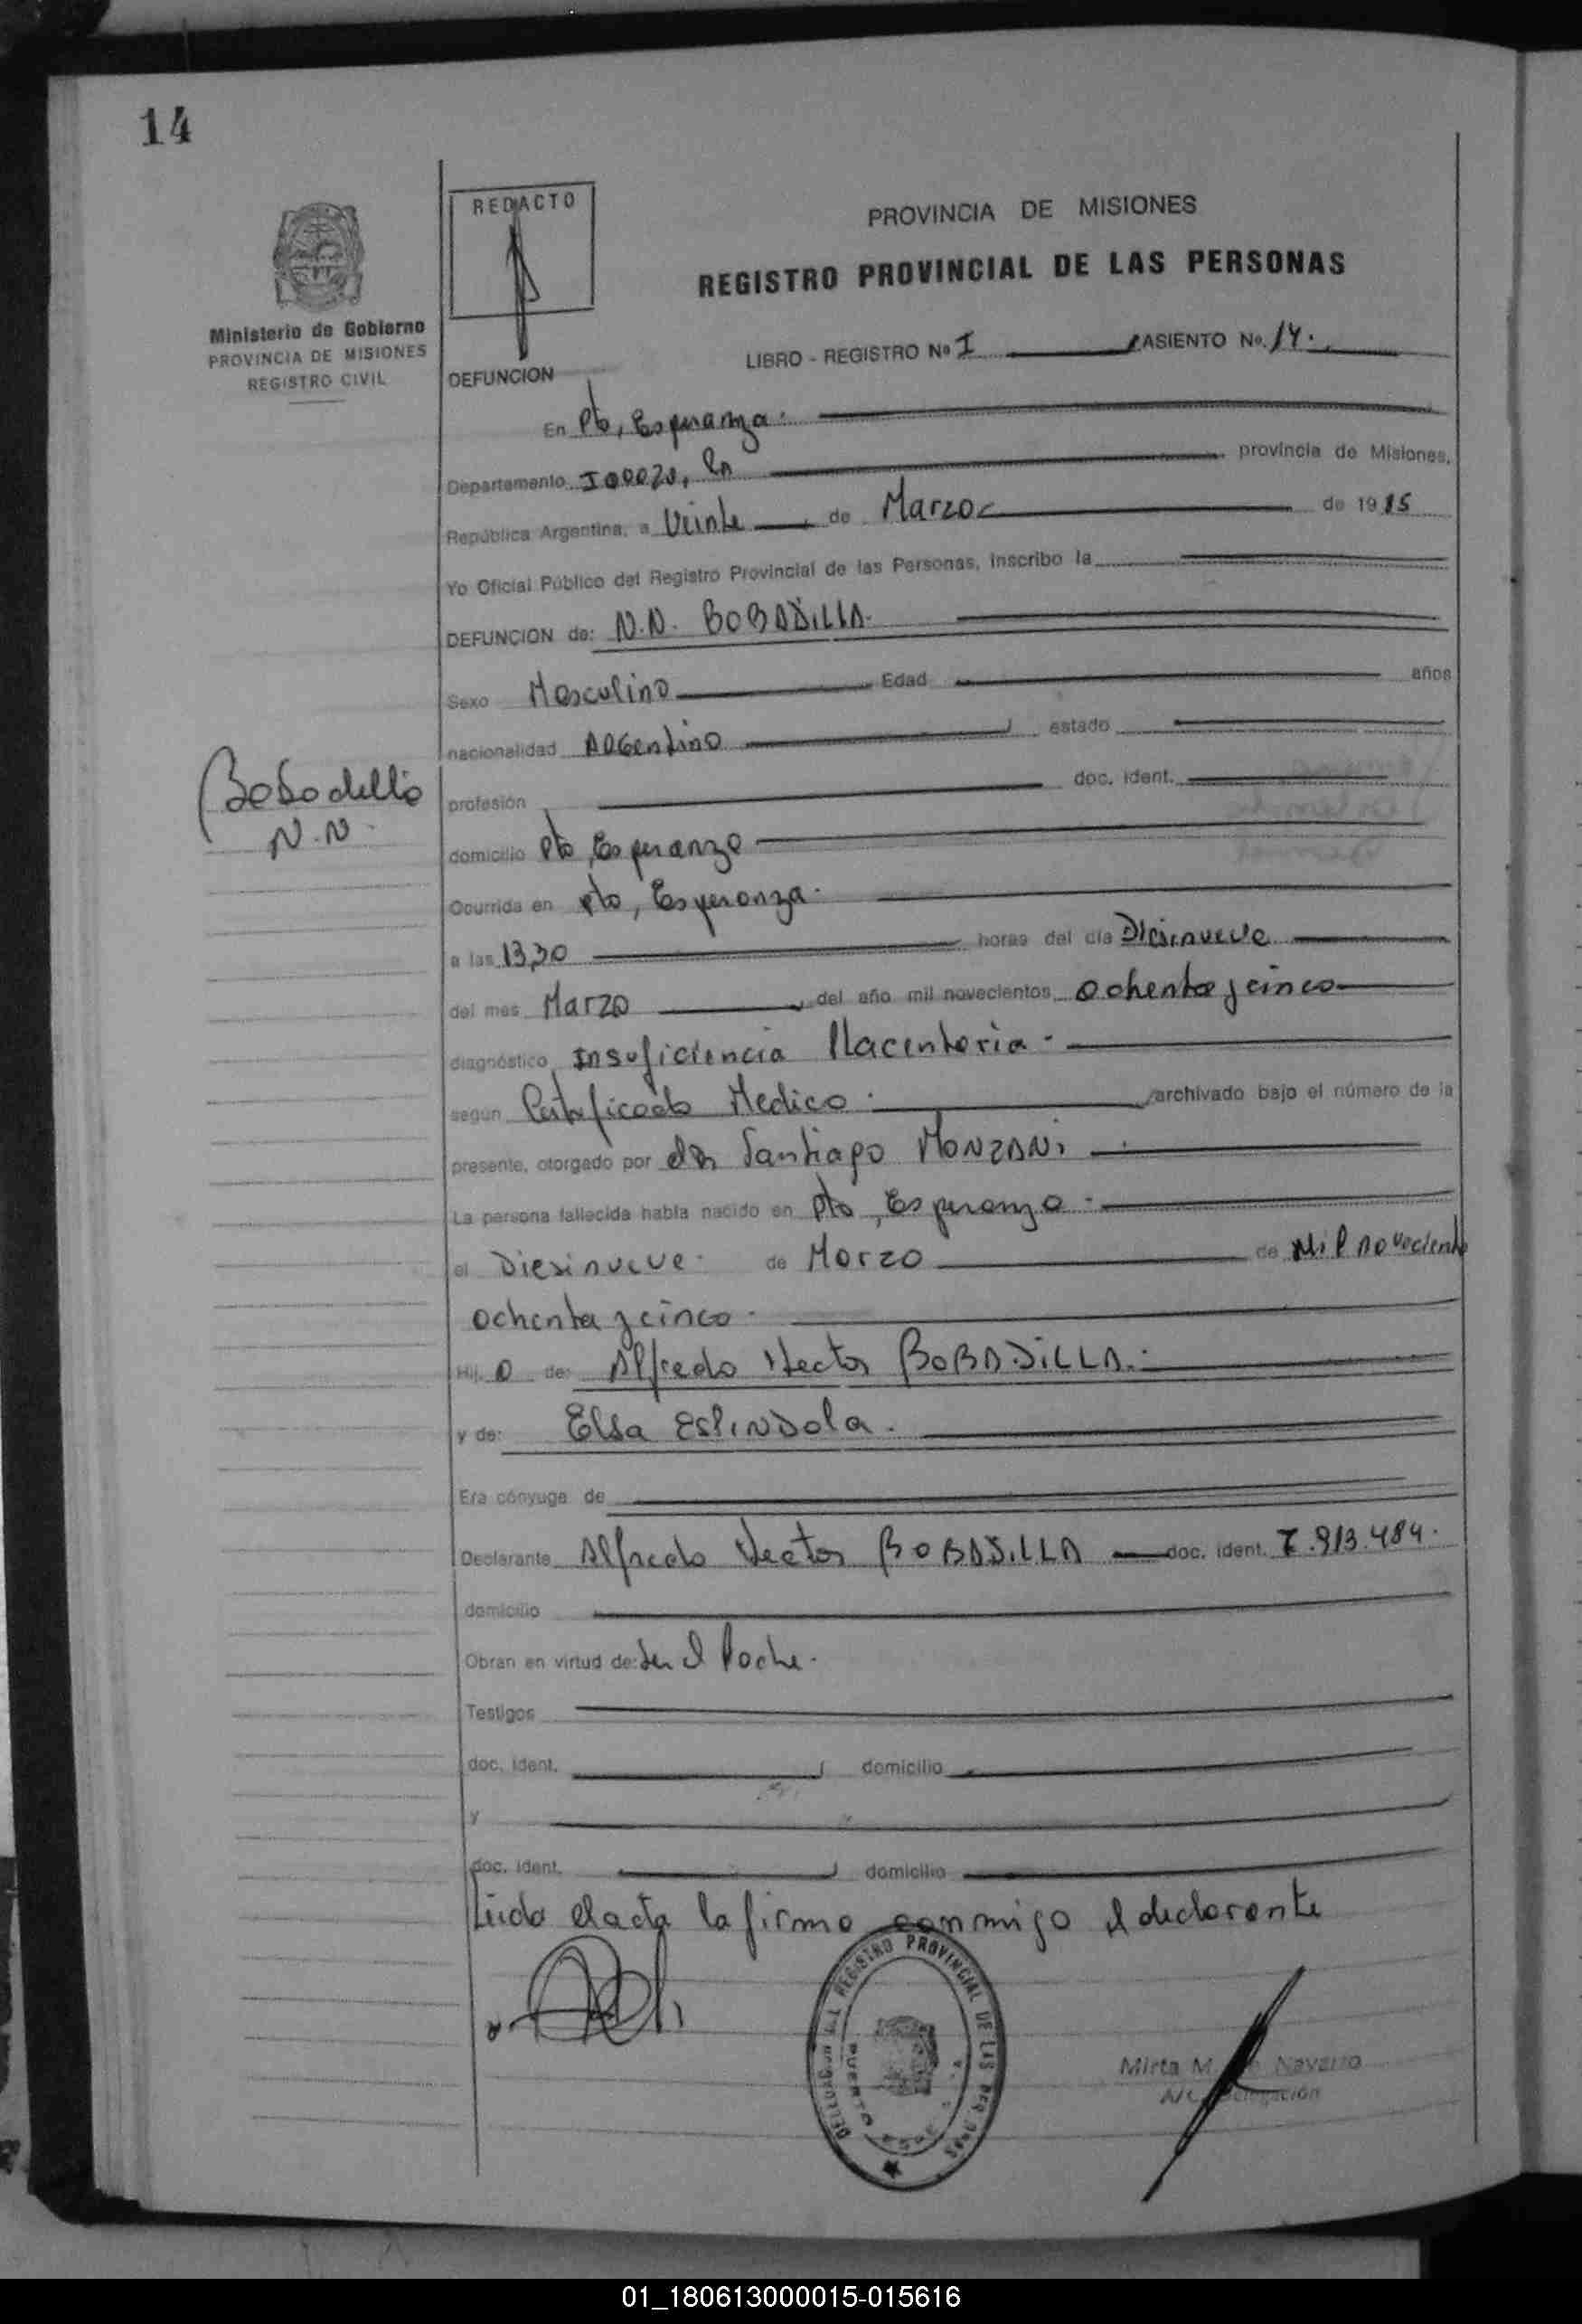 14
REDACTO
PROVINCIA DE MISIONES
REGISTRO PROVINCIAL DE LAS PERSONAS
Ministerio de Gobierno
PROVINCIA DE MISIONES
REGISTRO CIVIL
LIBRO - REGISTRO Nº I ASIENTO No. 14.
DEFUNCION
En Pto, Esperanza.
Departamento provincia de Misiones,
República Argentina, a Veinte de Marzo de 1985
Yo Oficial Público del Registro Provincial de las Personas, inscribo la
DEFUNCION de: N.N. BOBADILLA.
Sexo Masculino Edad años
nacionalidad ARGentino estado
Bobadilla
N.N.
profesión doc. ident.
domicilio Pto, Esperanza
Ocurrida en Pto, Esperanza.
a las 13,30 horas del día Diesinueve
del mes Marzo del año mil novecientos ochenta y cinco
diagnóstico Insuficiencia Placentaria -
según Certificado Medico. archivado bajo el número de la
presente, otorgado por dr Santiago MONZANi
La persona fallecida había nacido en Pto, Esperanza -
el Diesinueve. de Marzo de Mil noveciento
ochenta y cinco.
Hij o de: Alfredo Hector BOBADiLLA.
y de: Elsa ESPiNDola.
Era cónyuge de
Declarante Alfredo Hector BOBADiLLA doc. ident. 7.913.484.
domicilio
Obran en virtud de: Ser el Padre.
Testigos
doc. ident. domicilio
y
doc. ident. domicilio
Leido el acta la firma conmigo el declarante
DELEGACION REGISTRO PROVINCIAL DE LAS PERSONAS
PUERTO
Mirta M. Navarro
A/C Delegación
01_180613000015-015616